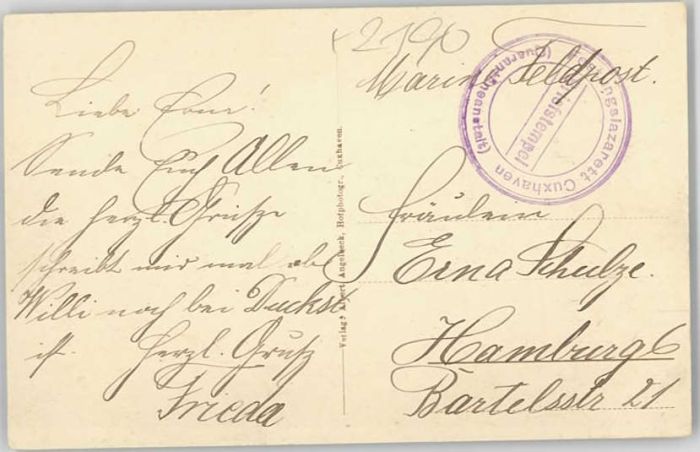 2190
Marine Feldpost.
Festungslazarett Cuxhaven
(Quarantäneanstalt)
Briefstempel
Liebe Erna!
Sende Euch Allen
die herzl. Grüße
schreibt mir mal ob
Willi noch bei
ist. Herzl. Gruß
Frieda
Verlag: Albert Angelbeck, Hofphotogr., Cuxhaven.
Fräulein
Erna Schulze.
Hamburg 6
Bartelsstr 21